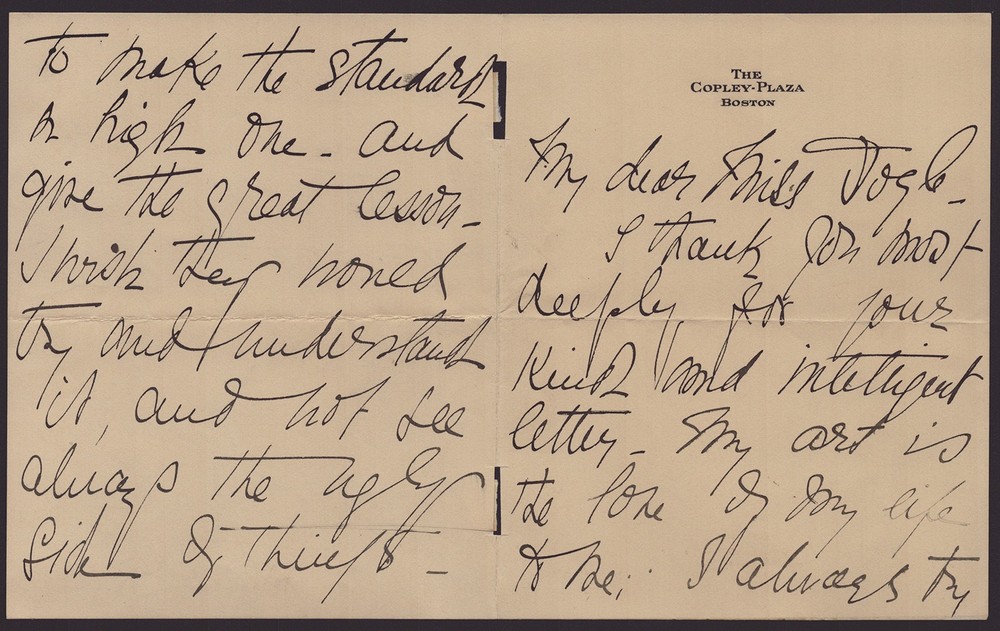 THE
COPLEY-PLAZA
BOSTON
My dear Miss
I thank you most
deeply for your
kind and intelligent
letter - My art is
the love of my life
to me; I always try
to make the standard
a high one - and
give the great lesson -
I wish they would
try and understand
it, and not see
always the ugly
side of things -